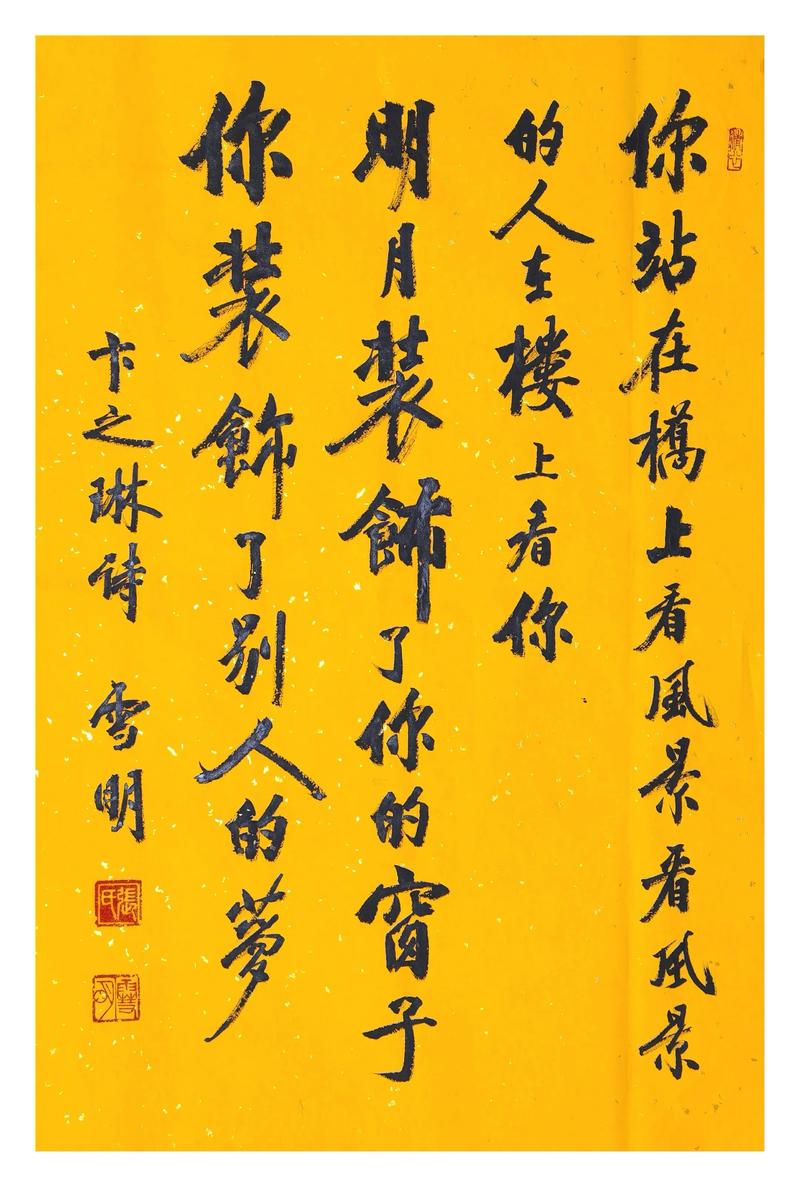 你站在橋上看風景看風景
的人在楼上看你
明月装飾了你的窗子
你装飾了别人的夢
卞之琳诗 雪明
張氏
雪明